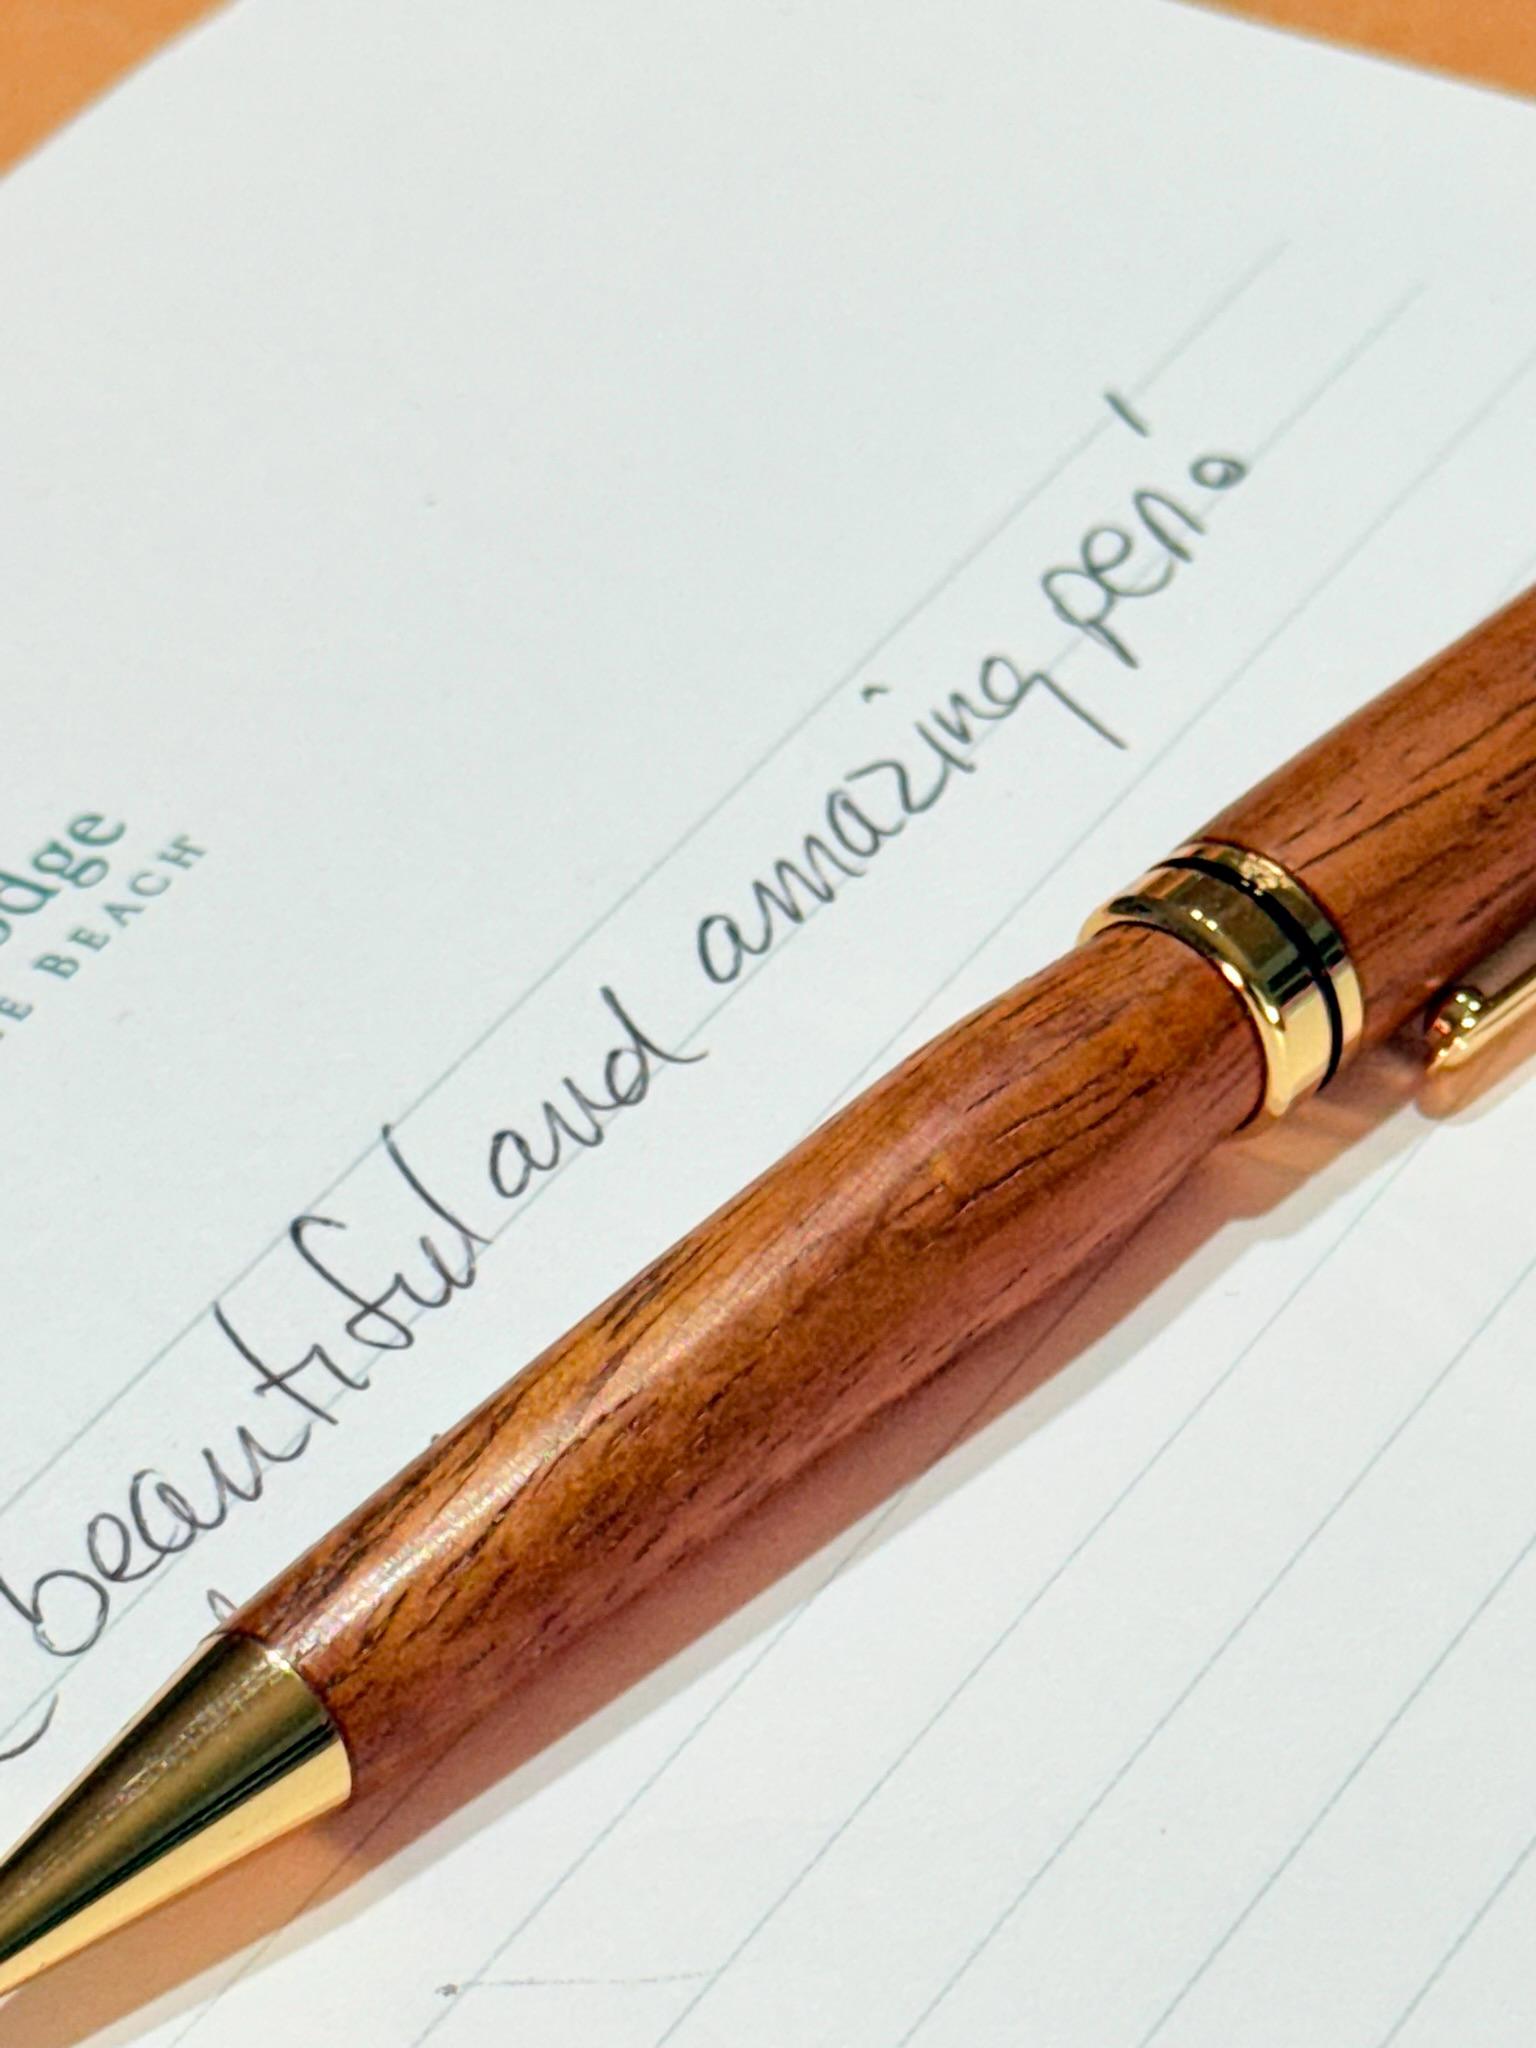 BEACH
beautiful and amazing pen!